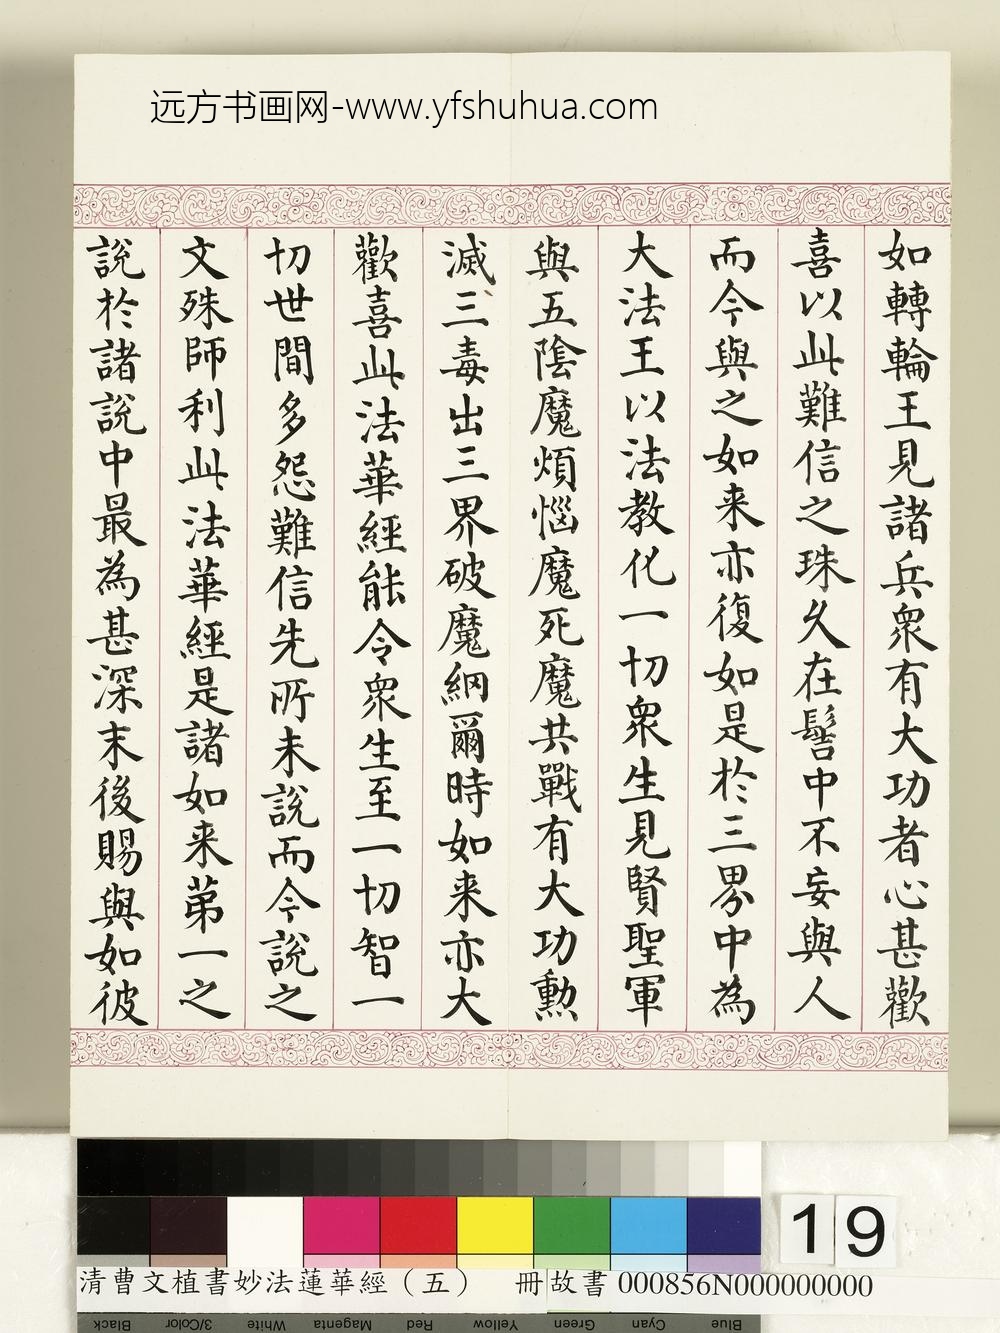 远方书画网-www.yfshuhua.com
如轉輪王見諸兵衆有大功者心甚歡
喜以此難信之珠久在髻中不妄與人
而今與之如来亦復如是於三界中為
大法王以法教化一切衆生見賢聖軍
與五陰魔煩惱魔死魔共戰有大功勲
滅三毒出三界破魔網爾時如来亦大
歡喜此法華經能令衆生至一切智一
切世間多怨難信先所未說而今說之
文殊師利此法華經是諸如来苐一之
說於諸說中最為甚深末後賜與如彼
19
清曹文植書妙法蓮華經（五） 冊 故書000856N000000000
Black 3/Color White Magenta Red Yellow Green Cyan Blue